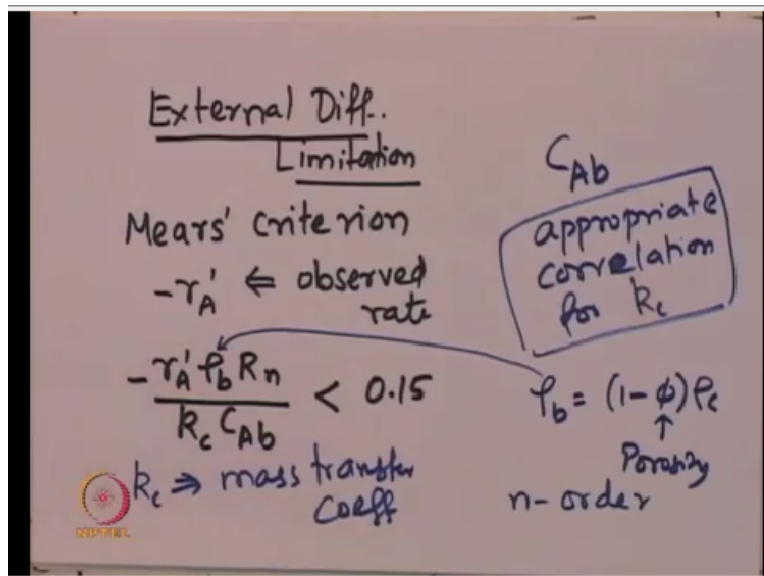 External Diff.
Limitation
Mears' criterion
-r_A' ⇐ observed
rate
-r_A' ρ_b R n / k_c C_Ab < 0.15
k_c ⇒ mass transfer
coeff
C_Ab
appropriate
correlation
for k_c
ρ_b = (1-ϕ)ρ_c
↑
Porosity
n-order
NPTEL